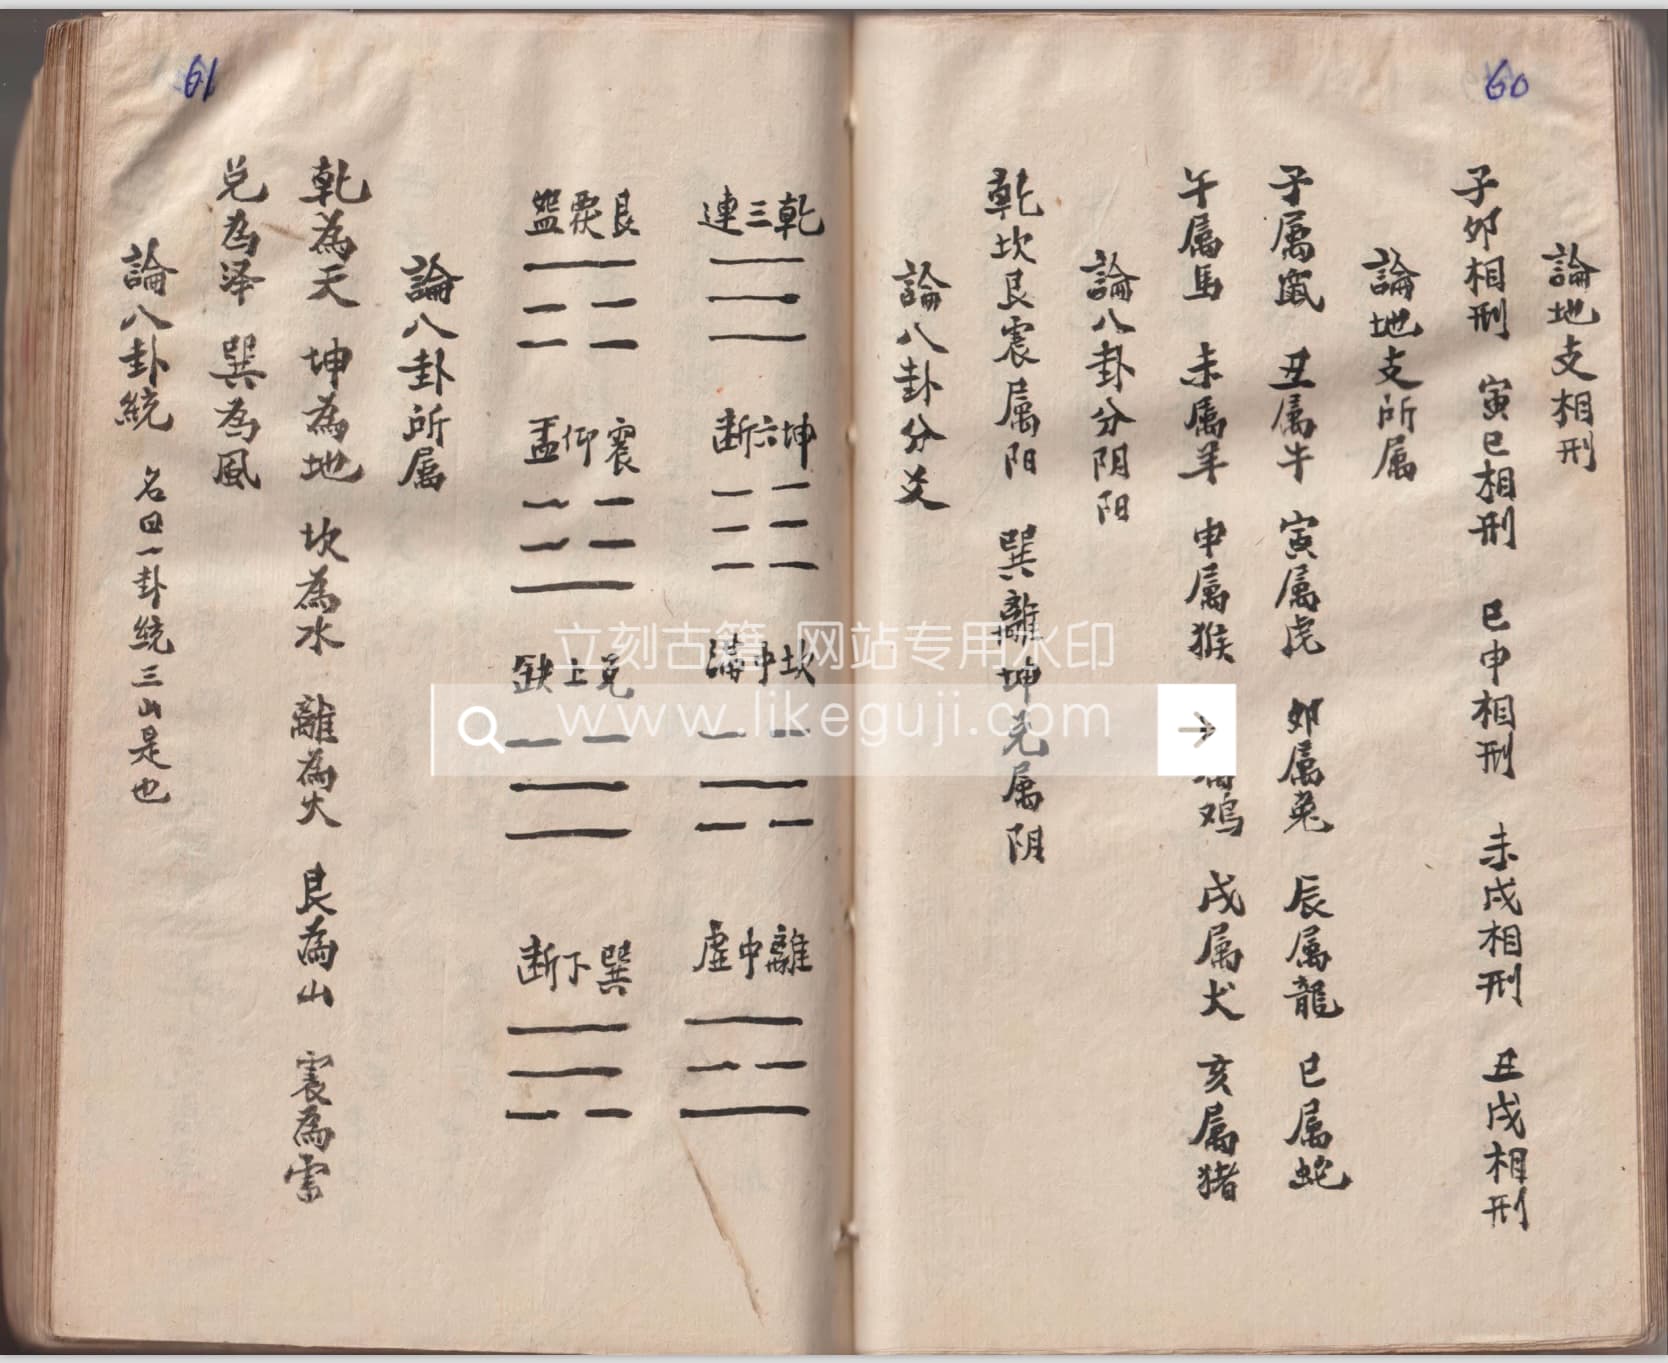 60
論地支相刑
子卯相刑 寅巳相刑 巳申相刑 未戌相刑 丑戌相刑
論地支所属
子属鼠 丑属牛 寅属虎 卯属兎 辰属龍 巳属蛇
午属馬 未属羊 申属猴 属鸡 戌属犬 亥属猪
論八卦分阴阳
乾坎艮震属阳 巽離坤兑属阴
論八卦分爻
61
乾三連 坤六断 坎中满 離中虚
艮覆盌 震仰盂 兑上缺 巽下断
論八卦所属
乾為天 坤為地 坎為水 離為火 艮為山 震為雷
兑為泽 巽為風
論八卦統 名曰一卦統三山是也
立刻古籍 网站专用水印
www.likeguji.com